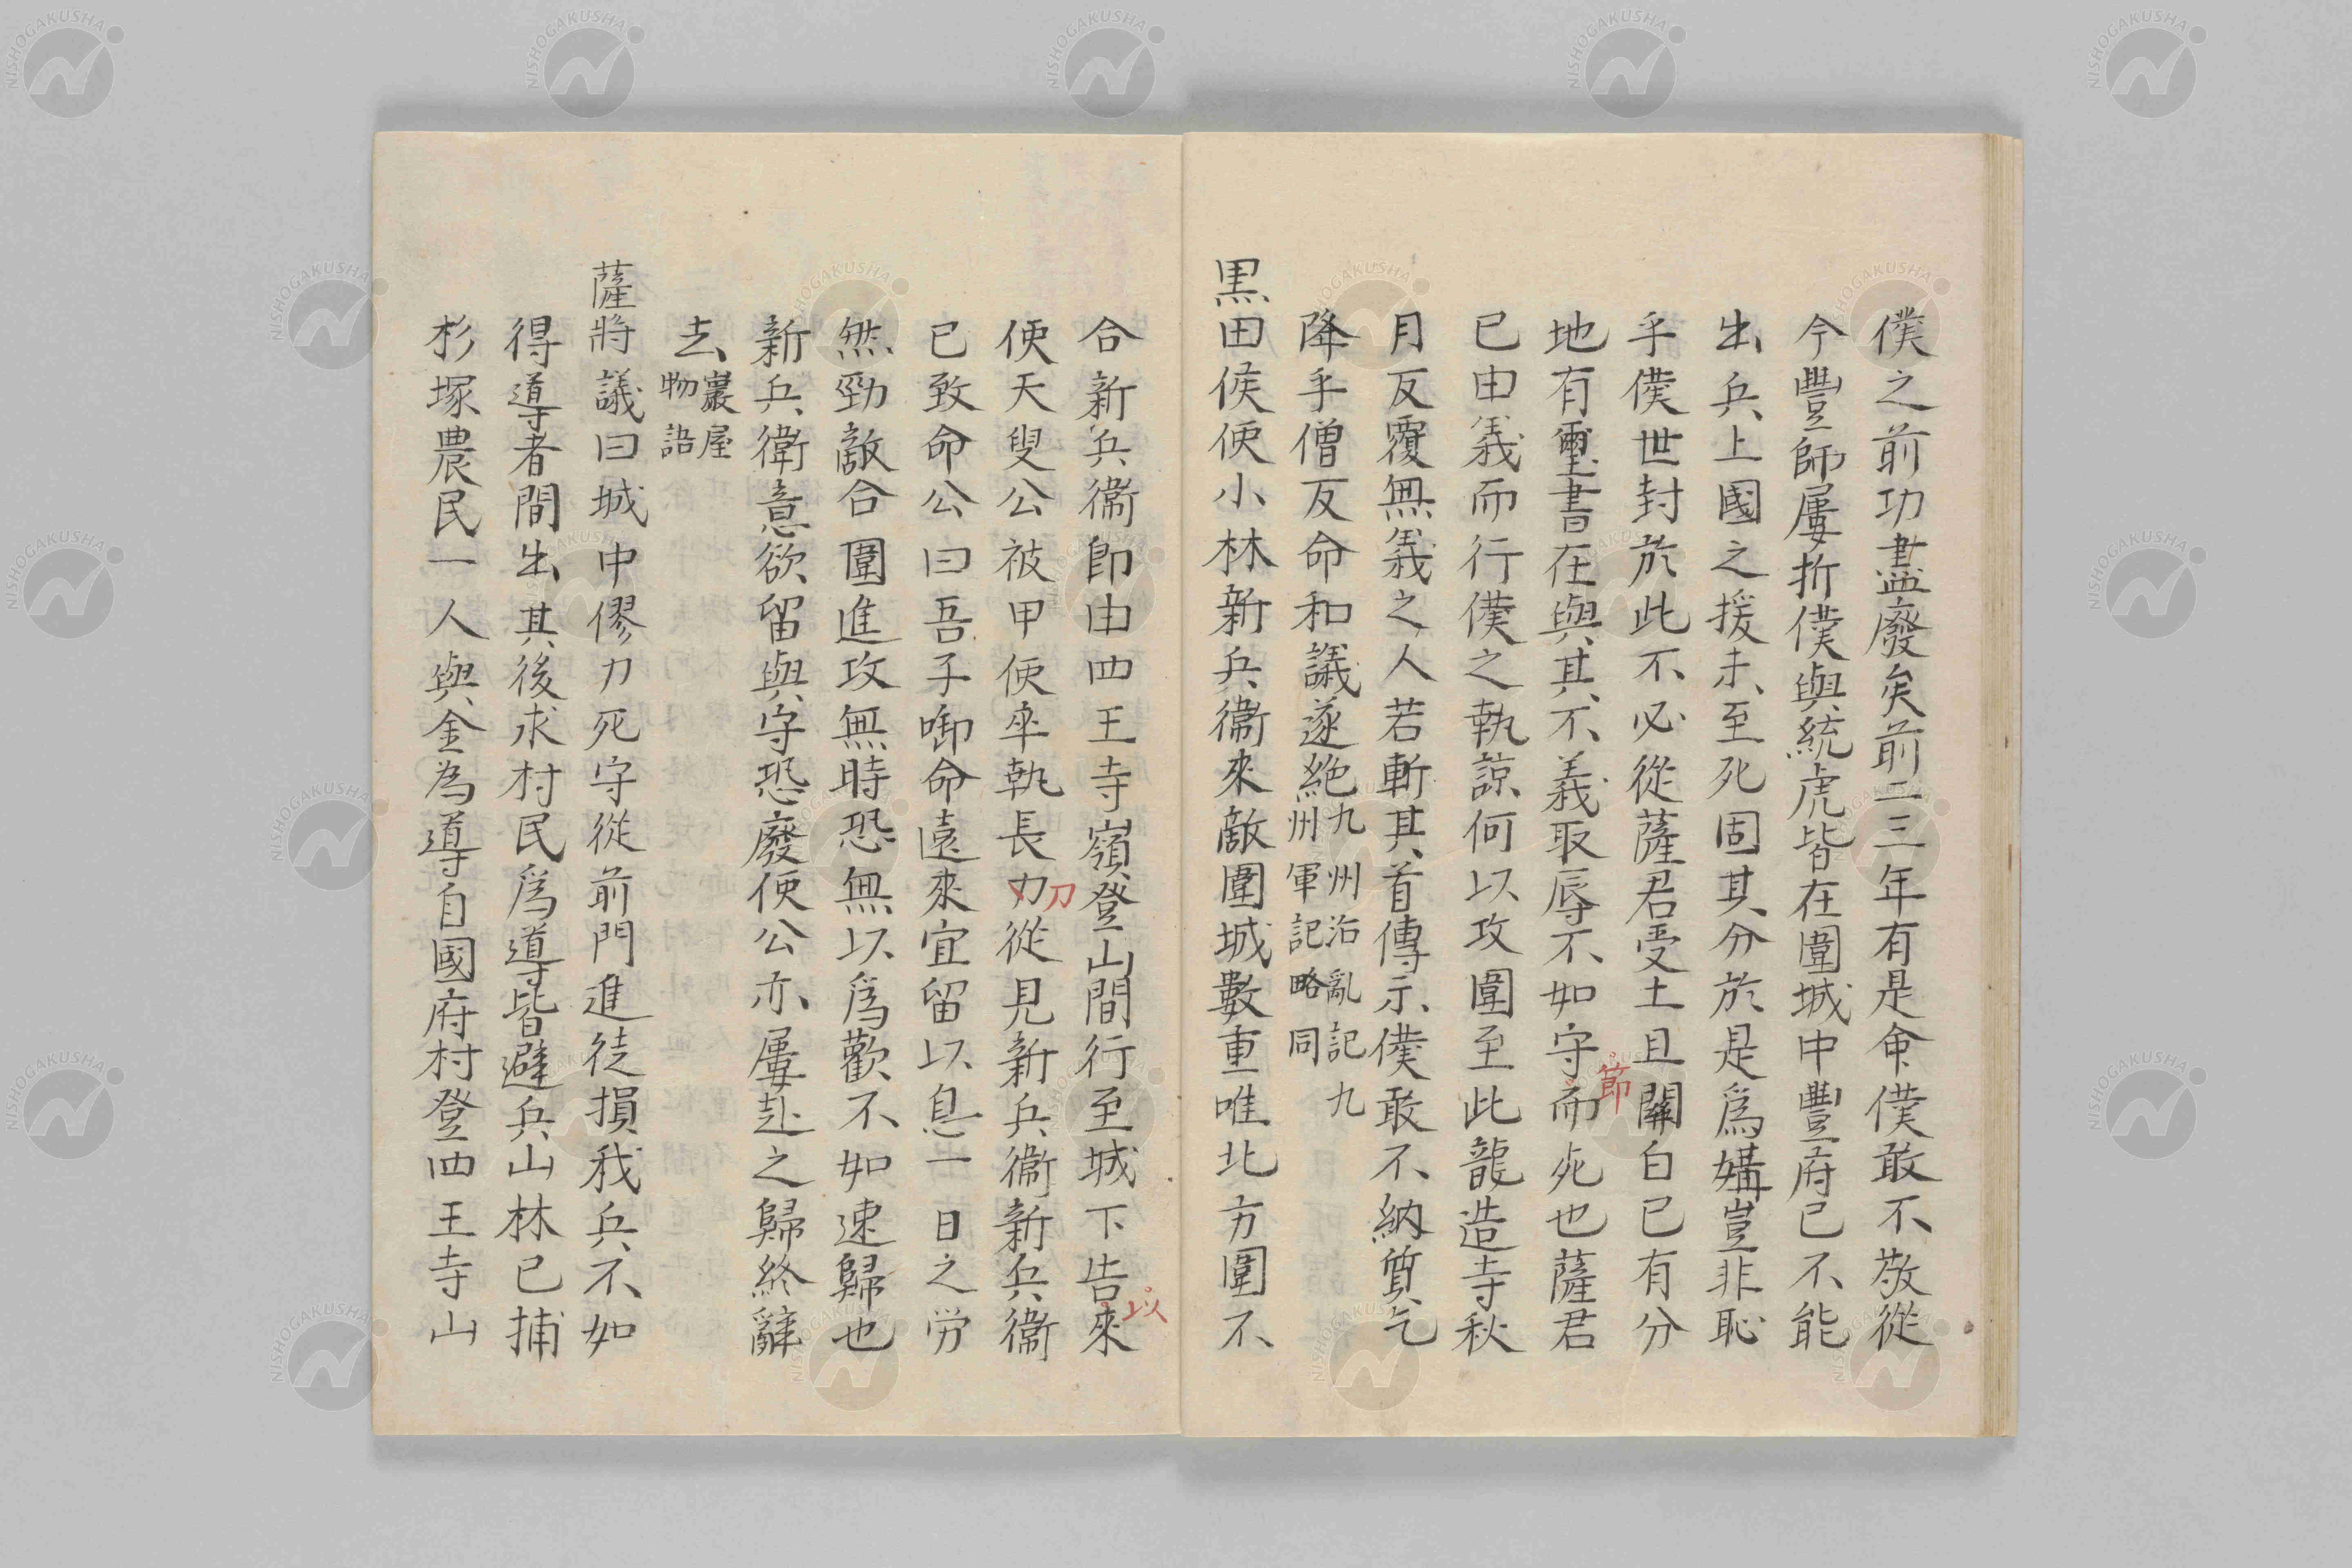 僕之前功盡廢矣前二三年有是命僕敢不敬從
今豐師屢折僕與統虎皆在圍城中豐府已不能
出兵上國之援未至死固其分於是爲媾豈非恥
乎僕世封於此不必從薩君受土且關白已有分
地有璽書在與其不義取辱不如守而死也薩君
節
已由義而行僕之執諒何以攻圍至此龍造寺秋
月反覆無義之人若斬其首傳示僕敢不納質乞
降乎僧反命和議遂絕
九州治亂記九
州軍記略同
黒田侯使小林新兵衞來敵圍城數重唯北方圍不
合新兵衞即由四王寺嶺登山間行至城下告來
以
使天叟公被甲使卒執長力從見新兵衞新兵衞
刀
已致命公曰吾子啣命遠來宜留以息一日之労
然勁敵合圍進攻無時恐無以爲歡不如速歸也
新兵衛意欲留與守恐廢使公亦屢赴之歸終辭
去
巖屋
物語
薩將議曰城中僇力死守從前門進徒損我兵不如
得導者間出其後求村民爲導皆避兵山林已捕
杉塚農民一人與金為導自國府村登四王寺山
NISHOGAKUSHA